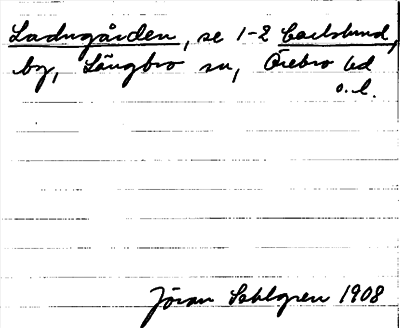 Ladugården, se 1-2 Carlslund,
by, Längbro sn, Örebro hd
ö.l.
Jöran Sahlgren 1908